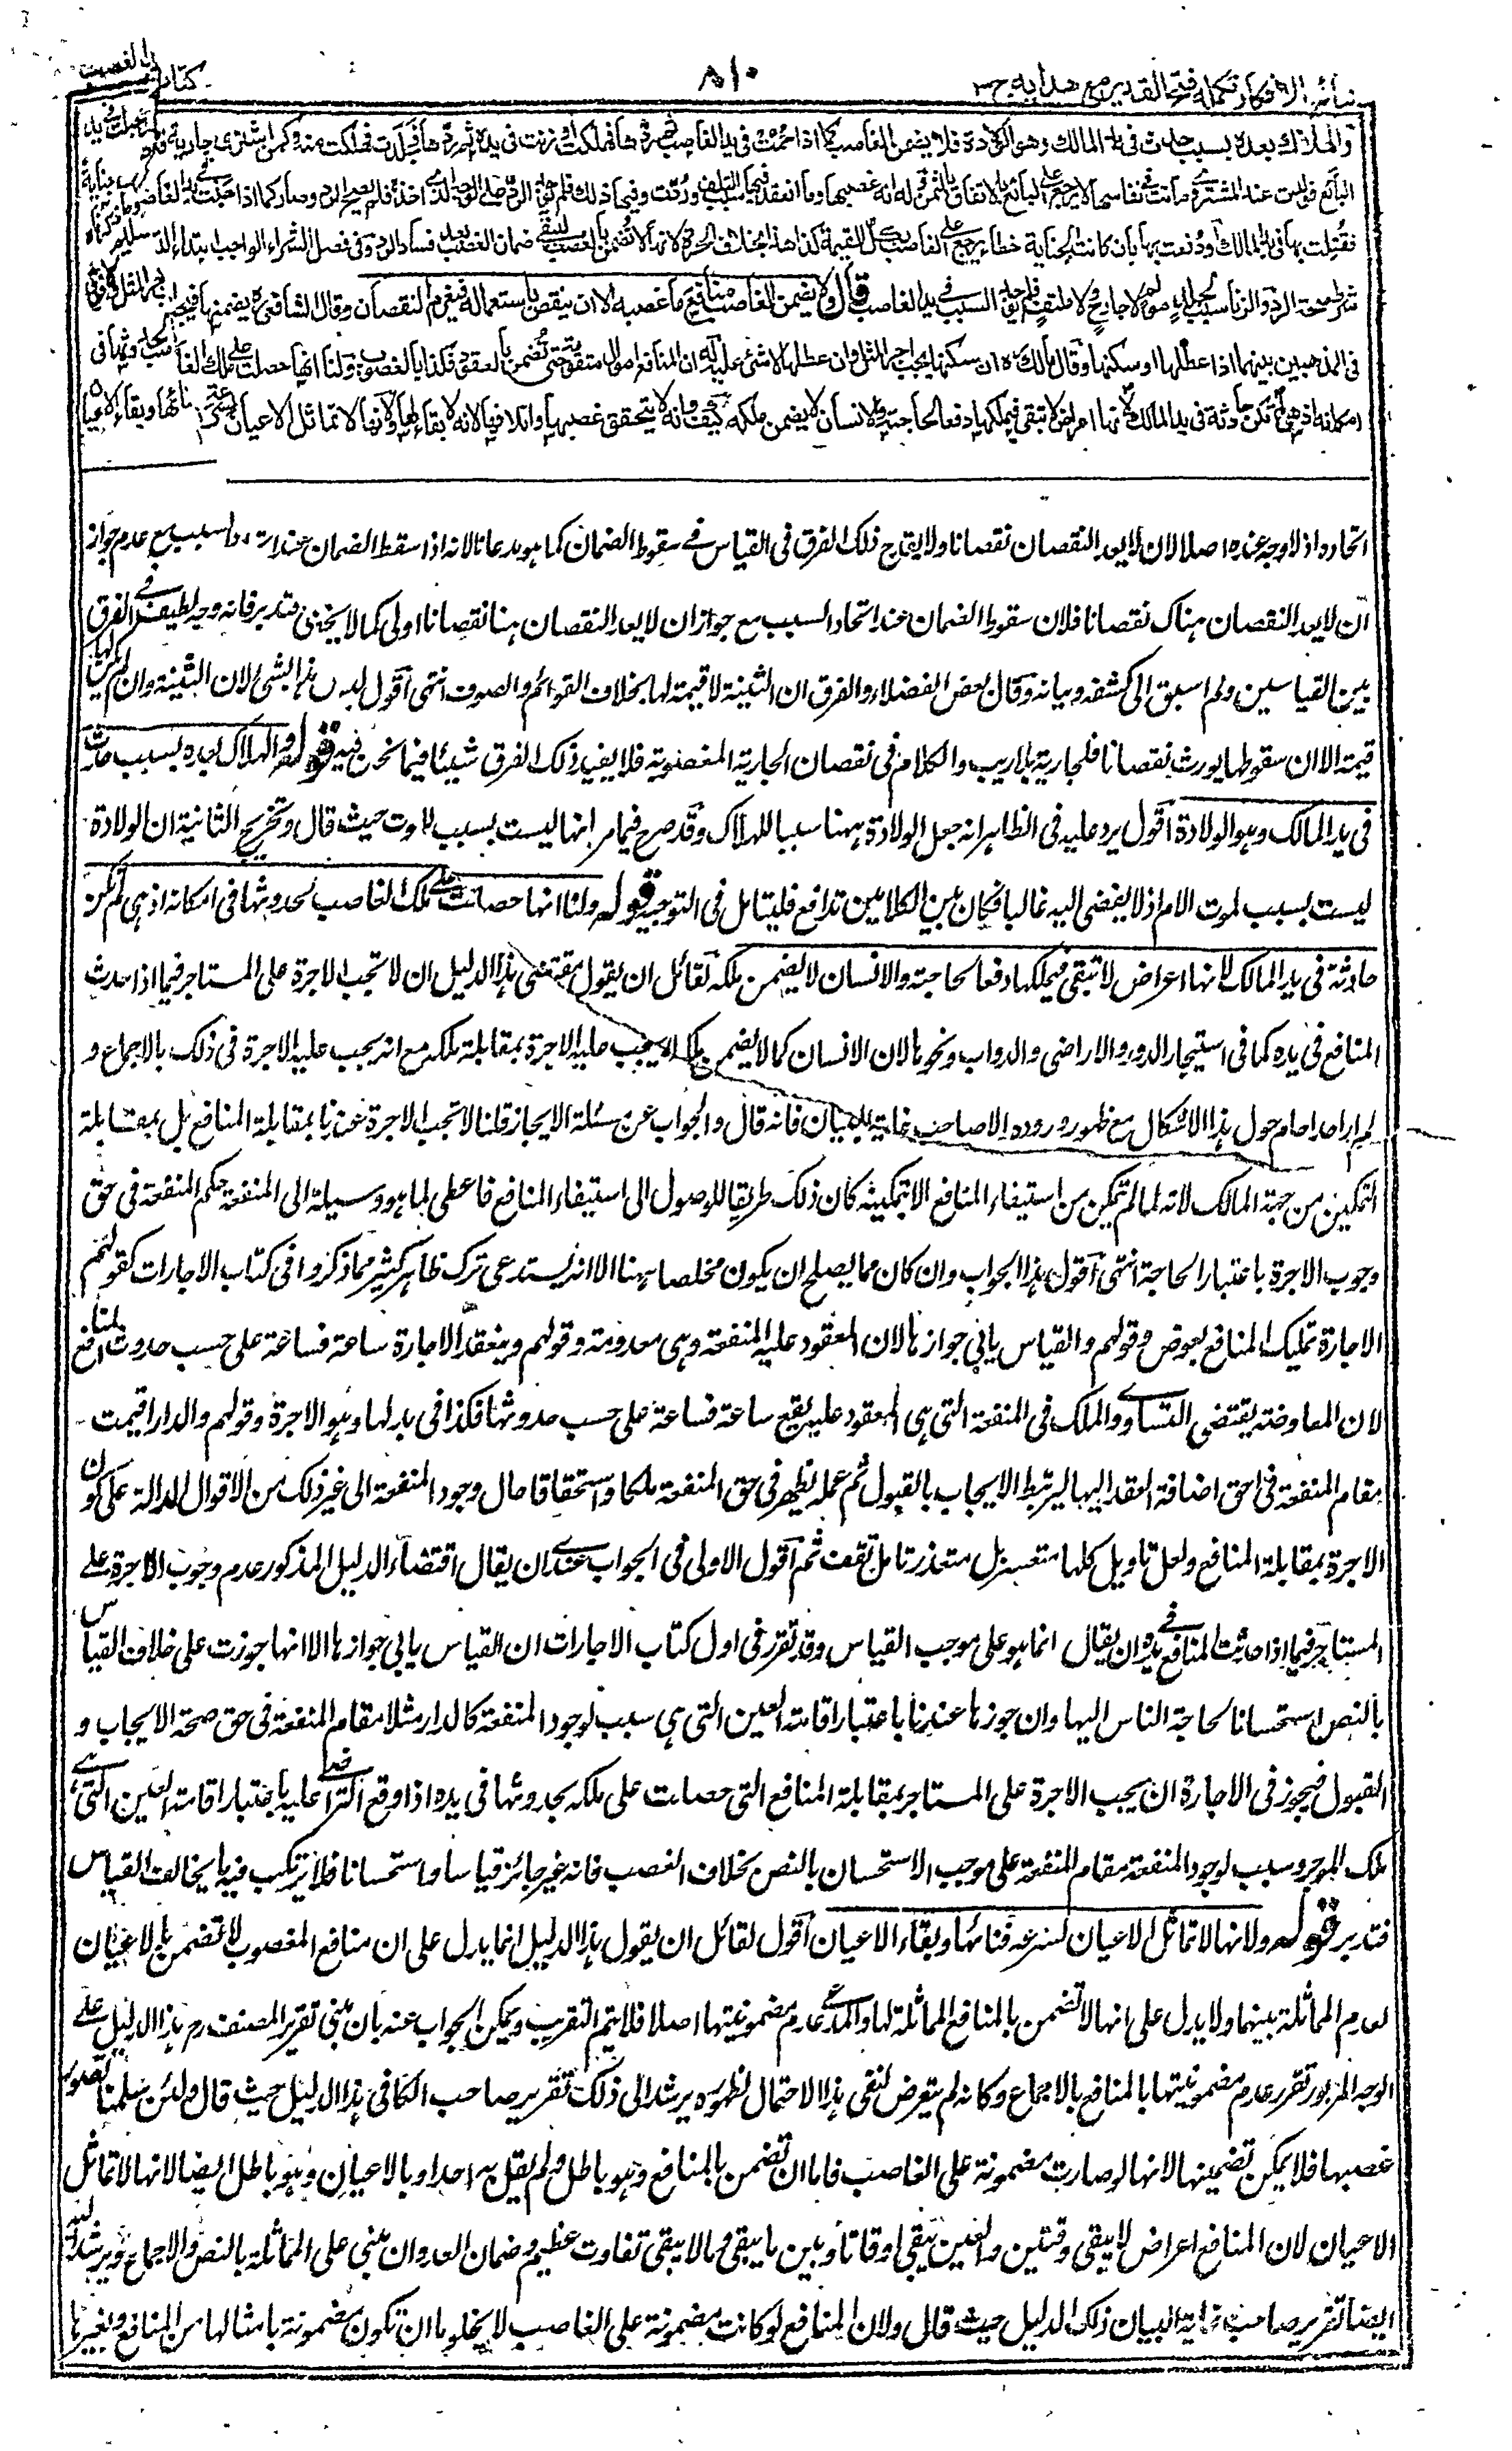 نتائج الافكار تكملة فتح القدير مع هدايه ج٣
٨١٠
كتاب الغصب
والهلاك بعده بسبب حدث فى يد المالك وهو الولادة فلا يضمن الغاصب كما اذا حمت فى يد الغاصب ثم ردها فهلكت او زنت فى يده ثم ردها فجلدت فهلكت منه وكمن اشترى جارية قد حبلت عند
البائع فولدت عند المشترى وماتت فى نفاسها لا يرجع على البائع بالاتفاق بالثمن وله انه غصبها وما انعقد فيها سبب التلف وردت وفيها ذلك فلم يوجد الرد على الوجه الذى اخذ فلم يصح الرد وصار كما اذا جنت فى يد الغاصب جناية
فقتلت بها فى يد المالك او دفعت بها بان كانت الجناية خطاء يرجع على الغاصب بكل القيمة كذا هذا بخلاف الحرة لانها لا تضمن بالغصب ليبقى ضمان الغصب بعد فساد الرد وفى فصل الشراء الواجب ابتداء التسليم
شرط صحة الرد والزنا سبب لجلد مولم لا جارح ولا متلف فلم يوجد السبب فى يد الغاصب قال ولا يضمن الغاصب منافع ما غصبه الا ان ينقص باستعماله فيغرم النقصان وقال الشافعى يضمنها فيجب اجر المثل ولا فرق
فى المذهبين بينهما اذا عطلها او سكنها وقال مالك ان سكنها يجب اجر المثل وان عطلها لا شئ عليه له ان المنافع اموال متقومة حتى تضمن بالعقود فكذا بالغصوب ولنا انها حصلت على ملك الغاصب لحدوثها فى
امكانه اذ هى لم تكن حادثة فى يد المالك لانها اعراض لا تبقى فيملكها دفعا لحاجته والانسان لا يضمن ملكه كيف وانه لا يتحقق غصبها واتلافها لانه لا بقاء لها ولانها لا تماثل الاعيان لسرعة فنائها وبقاء الاعيان
اتحاده اذ لا وجه عنده اصلا لان لا يعد النقصان نقصانا ولا يقدح ذلك الفرق فى القياس فى سقوط الضمان كما هو مدعانا لانه اذا سقط الضمان عند اتحاد السبب مع عدم جواز
ان لا يعد النقصان هناك نقصانا فلان سقوط الضمان عند اتحاد السبب مع جواز ان لا يعد النقصان هنا نقصانا اولى كما لا يخفى فتدبر فانه وجه لطيف فى الفرق
بين القياسين ولم اسبق الى كشفه وبيانه وقال بعض الفضلاء والفرق ان الثنية لا قيمة لها بخلاف القوائم والصوف انتهى اقول ليس هذا بشئ لان الثنية وان لم يكن لها
قيمة الا ان سقوطها يورث نقصانا فى الجارية بلا ريب والكلام فى نقصان الجارية المغصوبة فلا يفيد ذلك الفرق شيئا فيما نحن فيه قوله والهلاك بعده بسبب حدث
فى يد المالك وهو الولادة اقول يرد عليه فى الظاهر انه جعل الولادة ههنا سببا للهلاك وقد صرح فيما مر انها ليست بسبب للموت حيث قال وتخريج الثانية ان الولادة
ليست بسبب لموت الام اذ لا يفضى اليه غالبا فكان بين الكلامين تدافع فليتامل فى التوجيه قوله ولنا انها حصلت على ملك الغاصب لحدوثها فى امكانه اذ هى لم تكن
حادثة فى يد المالك لانها اعراض لا تبقى فيملكها دفعا لحاجته والانسان لا يضمن ملكه لقائل ان يقول مقتضى هذا الدليل ان لا تجب الاجرة على المستاجر فيما اذا حدث
المنافع فى يده كما فى استيجار الدور والاراضى والدواب ونحوها لان الانسان كما لا يضمن ملكه لا يجب عليه الاجرة بمقابلة ملكه مع انه يجب عليه الاجرة فى ذلك بالاجماع و
لم ار احدا حام حول هذا الاشكال مع ظهور وروده الا صاحب غاية البيان فانه قال والجواب عن مسئلة الايجار قلنا لا تجب الاجرة عندنا بمقابلة المنافع بل بمقابلة
التمكين من جهة المالك لانه لما لم يتمكن من استيفاء المنافع الا بتمكينه كان ذلك طريقا للوصول الى استيفاء المنافع فاعطى لما هو وسيلة الى المنفعة حكم المنفعة فى حق
وجوب الاجرة باعتبار الحاجة انتهى اقول هذا الجواب وان كان مما يصلح ان يكون مخلصا ههنا الا انه يستدعى ترك ظاهر كثير مما ذكروا فى كتاب الاجارات كقولهم
الاجارة تمليك المنافع بعوض وقولهم والقياس يابى جوازها لان المعقود عليه المنفعة وهى معدومة وقولهم وينعقد الاجارة ساعة فساعة على حسب حدوث المنافع
لان المعاوضة يقتضى التساوى والملك فى المنفعة التى هى المعقود عليه يقع ساعة فساعة على حسب حدوثها فكذا فى بدلها وهو الاجرة وقولهم والدار اقيمت
مقام المنفعة فى حق اضافة العقد اليها ليرتبط الايجاب بالقبول ثم عمله يظهر فى حق المنفعة ملكا واستحقاقا حال وجود المنفعة الى غير ذلك من الاقوال الدالة على كون
الاجرة بمقابلة المنافع ولعل تاويل كلها متعسر بل متعذر تامل تقف ثم اقول الاولى فى الجواب عندى ان يقال اقتضاء الدليل المذكور عدم وجوب الاجرة على
المستاجر فيما اذا حدثت المنافع فى يده ان يقال انما هو على موجب القياس وقد تقرر فى اول كتاب الاجارات ان القياس يابى جوازها الا انها جوزت على خلاف القياس
بالنص استحسانا لحاجة الناس اليها وان جوزها عندنا باعتبار اقامة العين التى هى سبب لوجود المنفعة كالدار مثلا مقام المنفعة فى حق صحة الايجاب و
القبول فيجوز فى الاجارة ان يجب الاجرة على المستاجر بمقابلة المنافع التى حصلت على ملكه بحدوثها فى يده اذا وقع التراضى عليه باعتبار اقامة العين التى هى
ملك الموجر وسبب لوجود المنفعة مقام المنفعة على موجب الاستحسان بالنص بخلاف الغصب فانه غير جائز قياسا واستحسانا فلا يرتكب فيه ما يخالف القياس
فتدبر قوله ولانها لا تماثل الاعيان لسرعة فنائها وبقاء الاعيان اقول لقائل ان يقول هذا الدليل انما يدل على ان منافع المغصوب لا تضمن بالاعيان
لعدم المماثلة بينهما ولا يدل على انها لا تضمن بالمنافع المماثلة لها والمدعى عدم مضمونيتها اصلا فلا يتم التقريب ويمكن الجواب عنه بان مبنى تقرير المصنف رح هذا الدليل على
الوجه المزبور تقرر عدم مضمونيتها بالمنافع بالاجماع وكانه لم يتعرض لنفى هذا الاحتمال لظهوره يرشد الى ذلك تقرير صاحب الكافى هذا الدليل حيث قال ولئن سلمنا تصور
غصبها فلا يمكن تضمينها لانها لو صارت مضمونة على الغاصب فاما ان تضمن بالمنافع وهو باطل ولم يقل به احد او بالاعيان وهو باطل ايضا لانها لا تماثل
الاعيان لان المنافع اعراض لا يبقى وقتين والعين يبقى اوقاتا وبين ما يبقى وما لا يبقى تفاوت عظيم وضمان العدوان مبنى على المماثلة بالنص والاجماع ويرشد اليه
ايضا تقرير صاحب غاية البيان ذلك الدليل حيث قال ولان المنافع لو كانت مضمونة على الغاصب لا يخلو ما ان تكون مضمونة بامثالها من المنافع وبغيرها